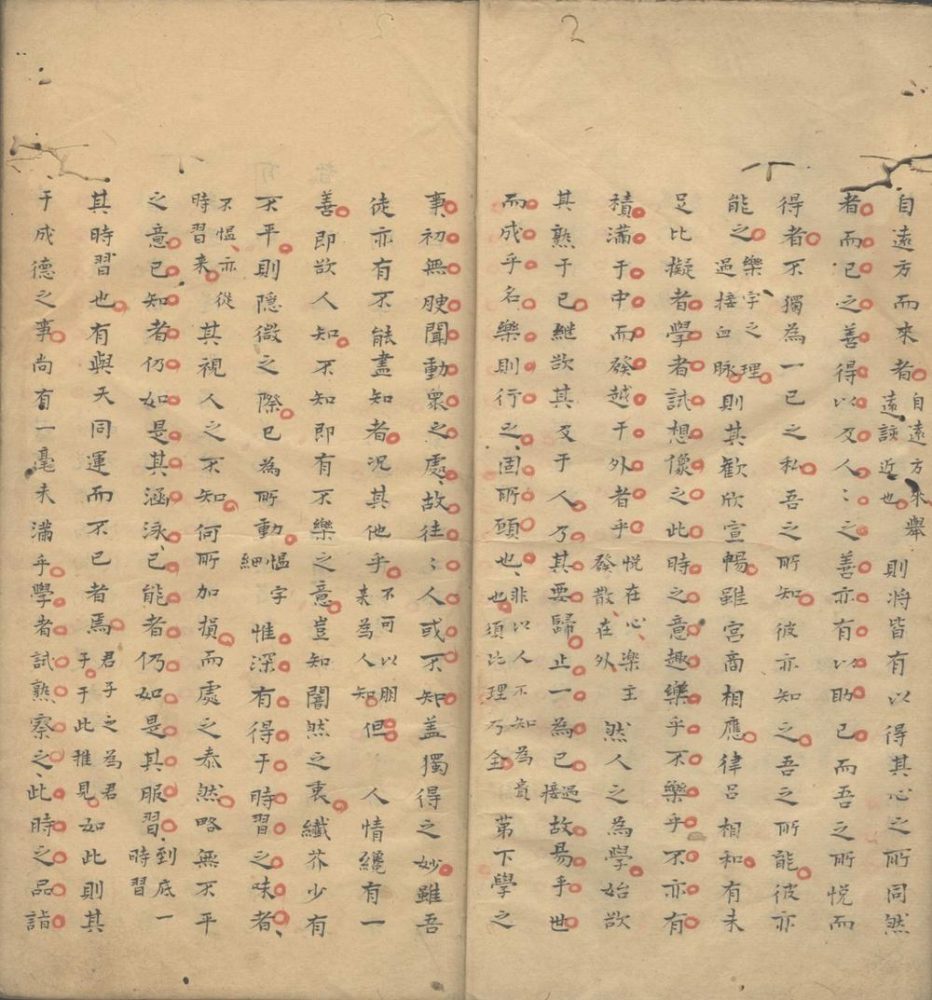 2
自遠方而來者自遠方來舉遠該近也則將皆有以得其心之所同然
者而已之善得以及人:之善亦有以助已而吾之所悅而
得者不獨為一已之私吾之所知彼亦知之吾之所能彼亦
能之樂字之理過接血脉則其歡欣宣暢雖宮商相應律呂相和有未
足比擬者學者試想像之此時之意趣樂乎不樂乎不亦有
積滿于中而發越于外者乎悅在心樂主發散在外然人之為學始欲
其熟于已繼欲其及于人乃其要歸止一為已過接故昜乎世
而成乎名樂則行之固所願也非以人不知為貴也須比理乃全第下學之
事初無腴聞動衆之處故往:人或不知盖獨得之妙雖吾
徒亦有不能盡知者況其他乎不可以朋來為人知但人情纔有一
善即欲人知不知即有不樂之意豈知闇然之裏纖芥少有
不平則隱微之際已為所動慍字細惟深有得于時習之味者
不慍亦從時習來其視人之不知何所加損而處之泰然略無不平
之意已知者仍如是其涵泳已能者仍如是其服習到底一時習
其時習也有與天同運而不已者焉君子之為君子于此雅見如此則其
于成德之事尚有一毫未滿乎學者試熟察之此時之品詣